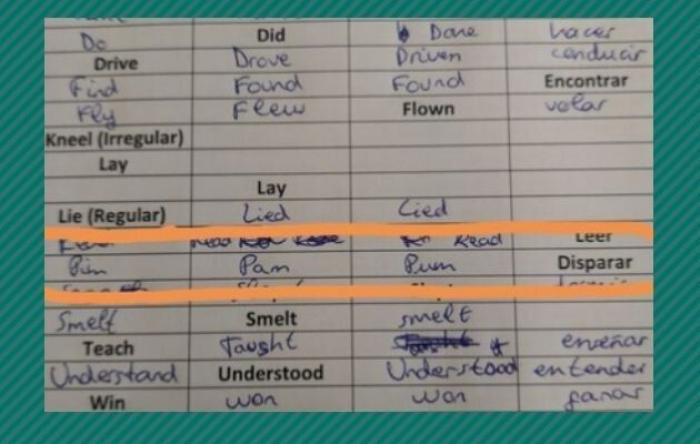 Do Did Done hacer
Drive Drove Driven conducir
Find Found Found Encontrar
Fly Flew Flown volar
Kneel (Irregular)
Lay
Lay
Lie (Regular) Lied Lied
Read Read Leer
Pim Pam Pum Disparar
Smelt smelt
Teach Taught enseñar
Understand Understood Understood entender
Win won won ganar